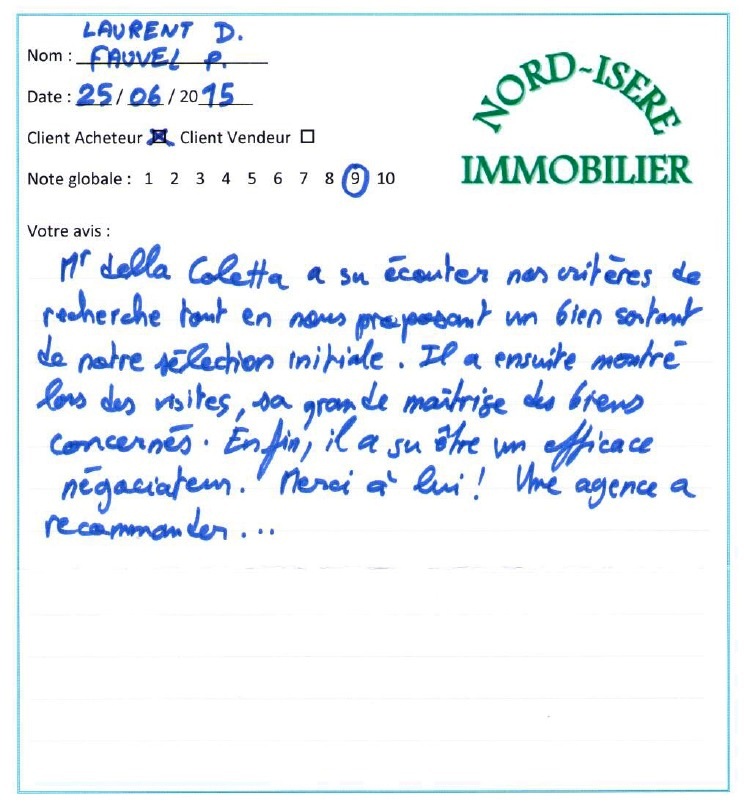 LAURENT D.
Nom : FAUVEL P.
Date : 25 / 06 / 2015
Client Acheteur ☒ Client Vendeur ☐
Note globale : 1 2 3 4 5 6 7 8 9 10
NORD-ISERE
IMMOBILIER
Votre avis :
Mr della Coletta a su écouter nos critères de
recherche tout en nous proposant un bien sortant
de notre sélection initiale. Il a ensuite montré
lors des visites, sa grande maîtrise des biens
concernés. Enfin, il a su être un efficace
négociateur. Merci à lui ! Une agence a
recommander...